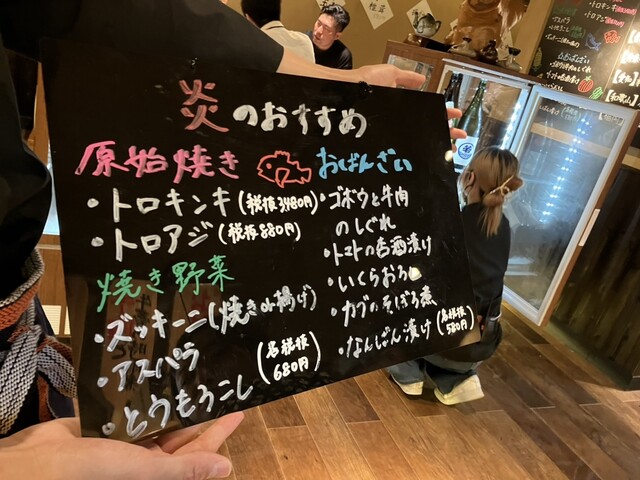 炎のおすすめ
原始焼き
・トロキンキ(税抜3,480円)
・トロアジ(税抜880円)
焼き野菜
・ズッキーニ(焼きor揚げ)
・アスパラ
・とうもろこし
(各税抜680円)
おばんざい
・ゴボウと牛肉
のしぐれ
・トマトの杏酒漬け
・いくらおろし
・カブのそぼろ煮
・なんばん漬け
(各税抜580円)
トロキンキ
トロアジ
アスパラ